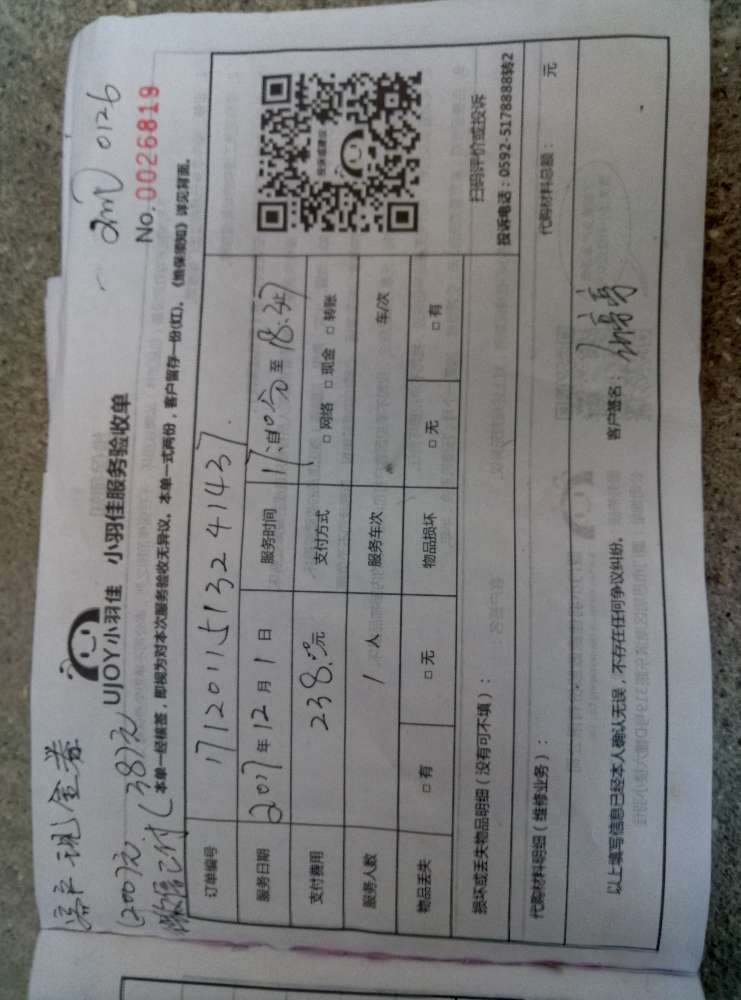 客户现金券
(200)元
微信已付(38)元
0126
No.0026819
UJOY小羽佳 小羽佳服务验收单
本单一经核签，即视为对本次服务验收无异议。本单一式两份，客户留存一份(红)，《维保须知》详见背面。
订单编号 171201151324 1437
服务日期 2017年12月1日 服务时间 17:00自 至18:37
支付费用 238.00元 支付方式 □网络 □现金 □转账
服务人数 1人 服务车次 车/次
物品丢失 □有 □无 物品损坏 □无 □有
投诉或建议
扫码评价或投诉
投诉电话：0592-5178888转2
损坏或丢失物品明细（没有可不填）：
代购材料明细（维修业务）： 代购材料总额： 元
以上填写信息已经本人确认无误，不存在任何争议纠纷。 客户签名：